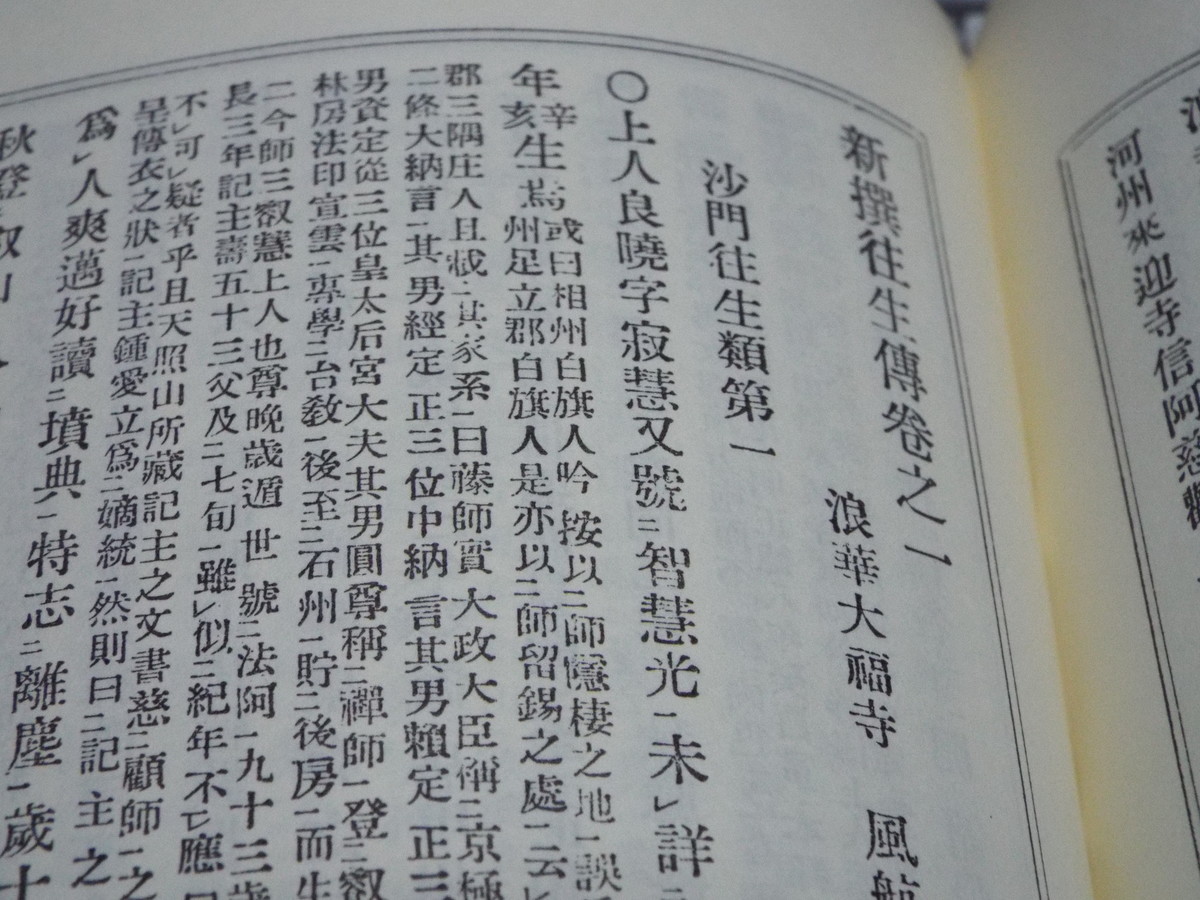 河州來迎寺信阿慈
新撰往生傳卷之一
浪華大福寺 風航
沙門往生類第一
〇上人良曉字寂慧又號二智慧光一未レ詳二
年辛亥生焉
或曰相州白旗人吟按以二師隱棲之地一誤
州足立郡白旗人是亦以二師留錫之處一云レ
郡三隅庄人且載二其家系一曰藤師實大政大臣稱二京極
二條大納言一其男經定正三位中納言其男賴定正三
男資定從三位皇太后宮大夫其男圓尊稱二禪師一登二叡
林房法印宣雲一專學二台敎一後至二石州一貯二後房一而生
二今師三叡慧上人也尊晚歲遁世號二法阿一九十三歲
長三年記主壽五十三父及二七旬一雖レ似二紀年不一レ應
不レ可レ疑者乎且天照山所藏記主之文書慈二顧師一之
呈傳衣之狀一記主鍾愛立爲二嫡統一然則曰二記主之
爲レ人爽邁好讀二墳典一特志二離塵一歲十
秋登叡山